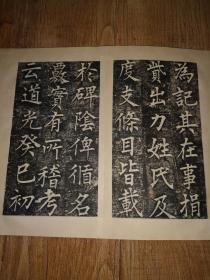 為記其在事捐
貲出力姓氏及
度支條目皆載
於碑陰俾循名
覈實有所稽考
云道光癸巳初